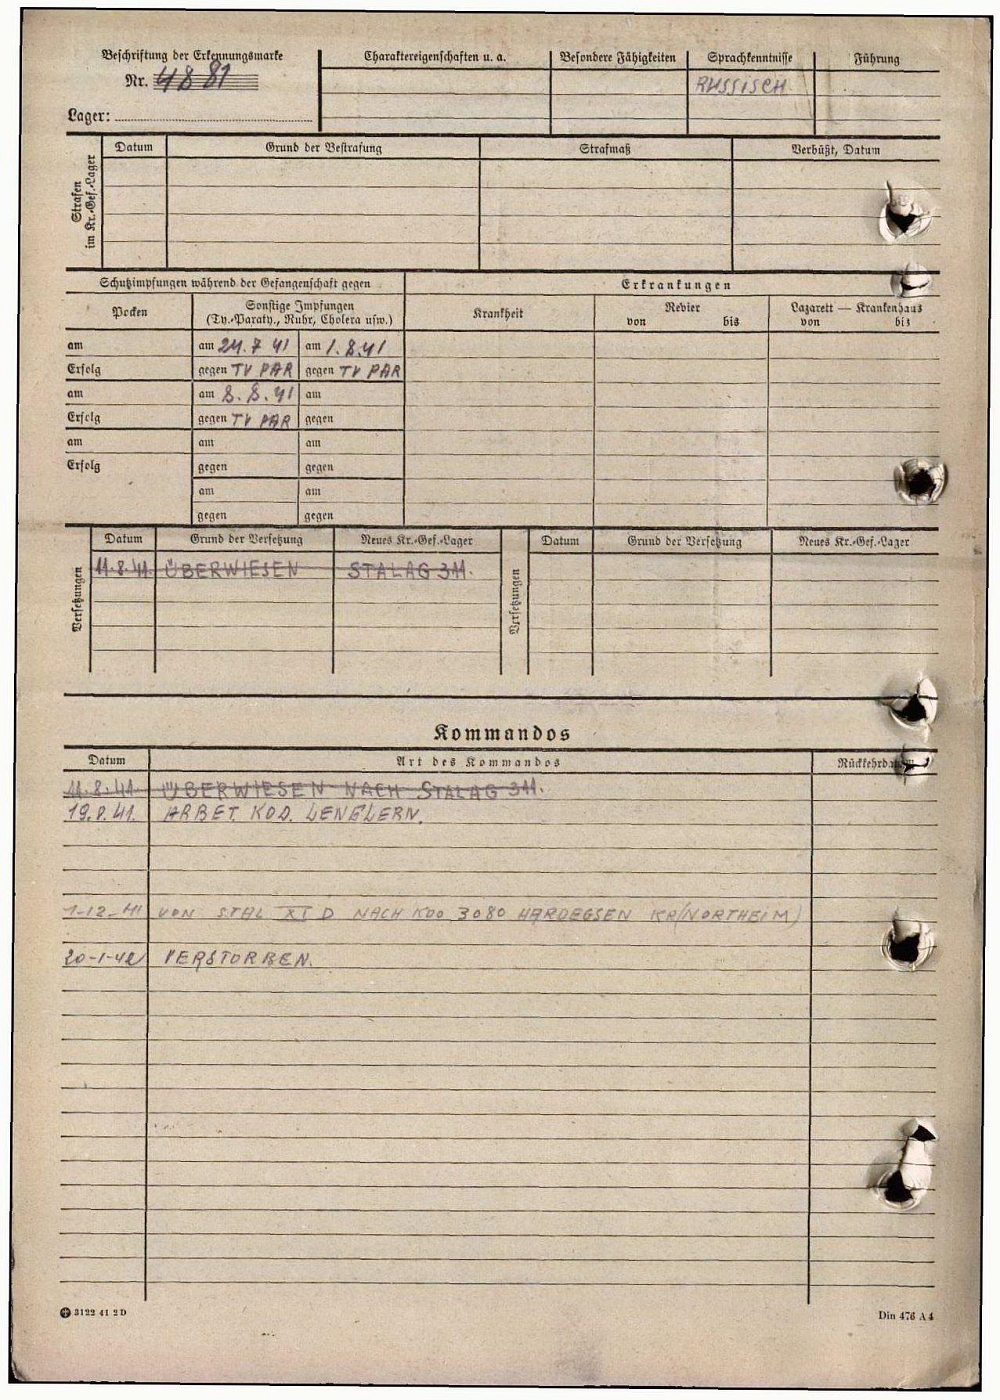 Beschriftung der Erkennungsmarke
Nr. 4881
Lager:
Charaktereigenschaften u. a.
Besondere Fähigkeiten
Sprachkenntnisse
RUSSISCH
Führung
Strafen
im Kr.-Gef.-Lager
Datum
Grund der Bestrafung
Strafmaß
Verbüßt, Datum
Schutzimpfungen während der Gefangenschaft gegen
Erkrankungen
Pocken
Sonstige Impfungen
(Ty.-Paraty., Ruhr, Cholera usw.)
Krankheit
Revier
von bis
Lazarett — Krankenhaus
von bis
am am 24.7 41 am 1.8.41
Erfolg gegen TY PAR gegen TY PAR
am am 8.8.41 am
Erfolg gegen TY PAR gegen
am am am
Erfolg gegen gegen
am am
gegen gegen
Versetzungen
Datum Grund der Versetzung Neues Kr.-Gef.-Lager
11.8.41. ÜBERWIESEN STALAG 311.
Versetzungen
Datum Grund der Versetzung Neues Kr.-Gef.-Lager
Kommandos
Datum Art des Kommandos
11.8.41. ÜBERWIESEN NACH STALAG 311.
19.8.41. ARBET. KOD. LENGLERN.
1-12-41 VON STAL XI D NACH KDO 3080 HARDEGSEN KR/NORTHEIM)
20-1-42 VERSTORBEN.
3122 41 2 D
Din 476 A 4